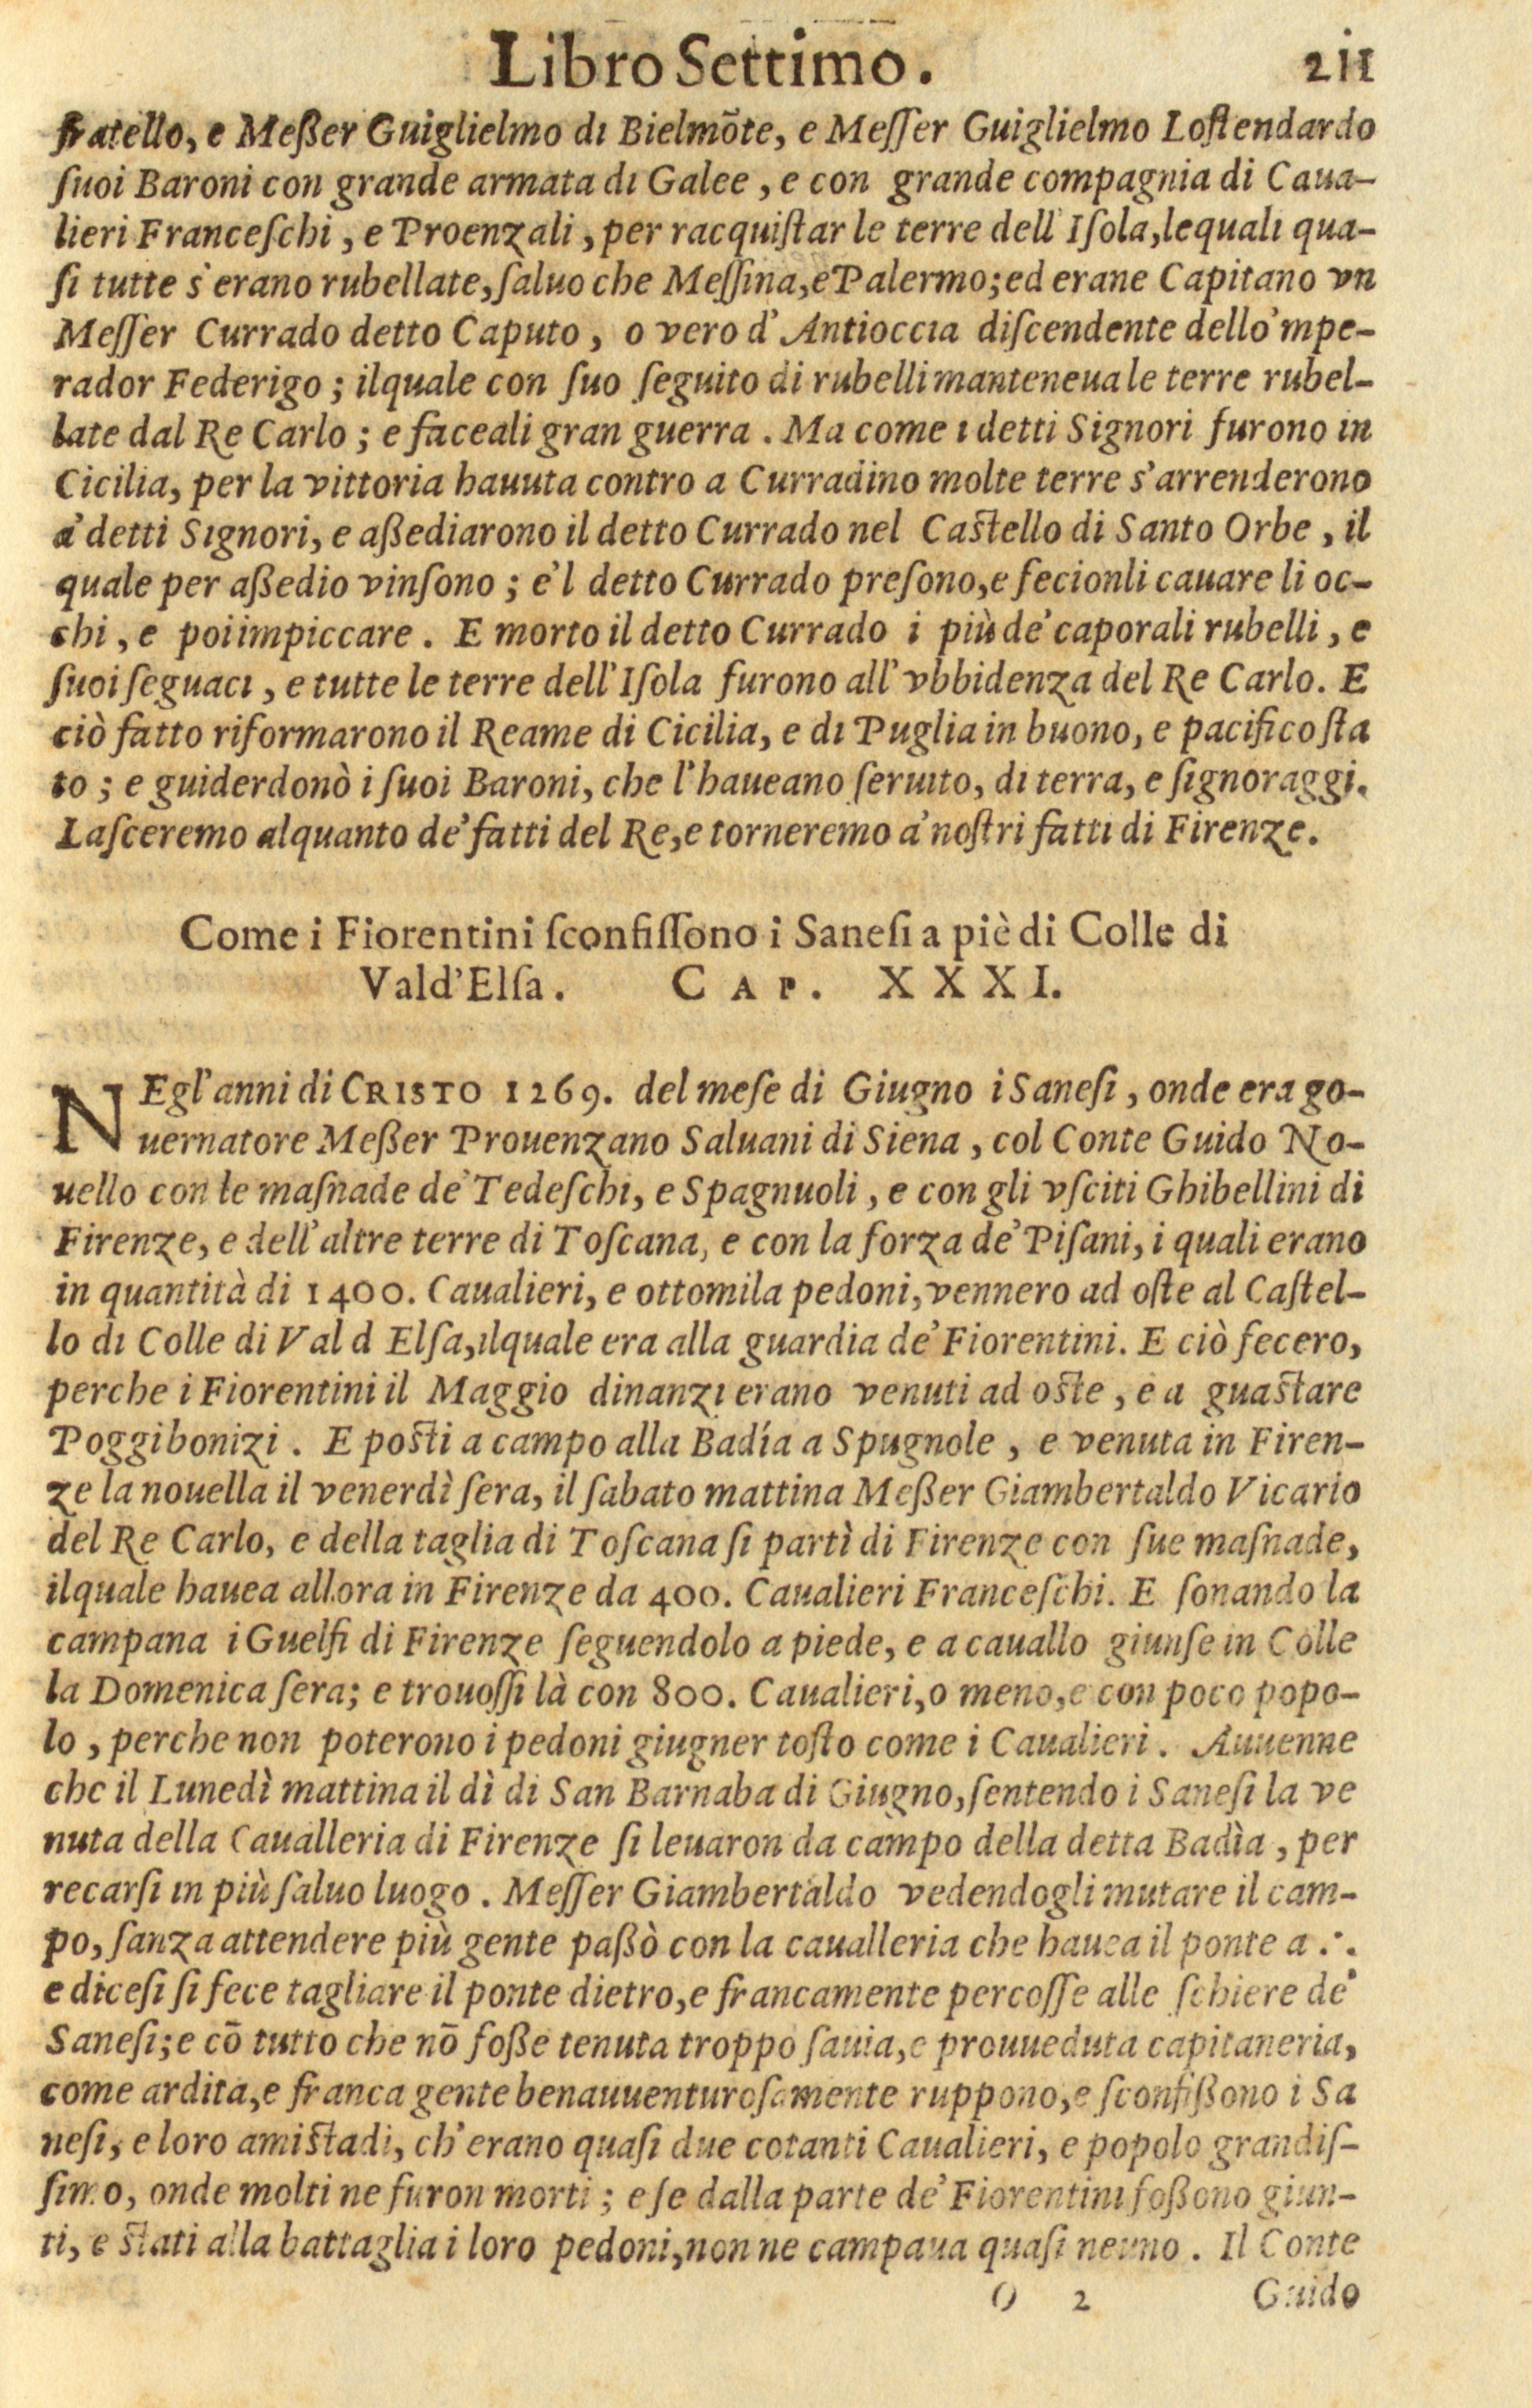 Libro Settimo. 211
fratello, e Meßer Guiglielmo di Bielmōte, e Meſſer Guiglielmo Loſtendardo
ſuoi Baroni con grande armata di Galee, e con grande compagnia di Caua-
lieri Franceſchi, e Proenzali, per racquiſtar le terre dell'Iſola, lequali qua-
ſi tutte s'erano rubellate, ſaluo che Meſſina, e Palermo; ed erane Capitano vn
Meſſer Currado detto Caputo, o vero d'Antioccia diſcendente dello'mpe-
rador Federigo; ilquale con ſuo ſeguito di rubelli manteneua le terre rubel-
late dal Re Carlo; e faceali gran guerra. Ma come i detti Signori furono in
Cicilia, per la vittoria hauuta contro a Curradino molte terre s'arrenderono
a'detti Signori, e aßediarono il detto Currado nel Caſtello di Santo Orbe, il
quale per aßedio vinſono; e'l detto Currado preſono, e fecionli cauare li oc-
chi, e poi impiccare. E morto il detto Currado i più de'caporali rubelli, e
ſuoi ſeguaci, e tutte le terre dell'Iſola furono all'vbbidenza del Re Carlo. E
ciò fatto riformarono il Reame di Cicilia, e di Puglia in buono, e pacifico ſta
to; e guiderdonò i ſuoi Baroni, che l'haueano ſeruito, di terra, e ſignoraggi.
Laſceremo alquanto de'fatti del Re, e torneremo a'noſtri fatti di Firenze.
Come i Fiorentini ſconfiſſono i Saneſi a piè di Colle di
Vald'Elſa. CAP. XXXI.
NEgl'anni di CRISTO 1269. del meſe di Giugno i Saneſi, onde era go-
uernatore Meßer Prouenzano Saluani di Siena, col Conte Guido No-
uello con le maſnade de'Tedeſchi, e Spagnuoli, e con gli vſciti Ghibellini di
Firenze, e dell'altre terre di Toſcana, e con la forza de'Piſani, i quali erano
in quantità di 1400. Caualieri, e ottomila pedoni, vennero ad oſte al Caſtel-
lo di Colle di Val d Elſa, ilquale era alla guardia de'Fiorentini. E ciò fecero,
perche i Fiorentini il Maggio dinanzi erano venuti ad oſte, e a guaſtare
Poggibonizi. E poſti a campo alla Badía a Spugnole, e venuta in Firen-
ze la nouella il venerdì ſera, il ſabato mattina Meßer Giambertaldo Vicario
del Re Carlo, e della taglia di Toſcana ſi partì di Firenze con ſue maſnade,
ilquale hauea allora in Firenze da 400. Caualieri Franceſchi. E ſonando la
campana i Guelfi di Firenze ſeguendolo a piede, e a cauallo giunſe in Colle
la Domenica ſera; e trouoſſi là con 800. Caualieri, o meno, e con poco popo-
lo, perche non poterono i pedoni giugner toſto come i Caualieri. Auuenne
che il Lunedì mattina il dì di San Barnaba di Giugno, ſentendo i Saneſi la ve
nuta della Caualleria di Firenze ſi leuaron da campo della detta Badìa, per
recarſi in più ſaluo luogo. Meſſer Giambertaldo vedendogli mutare il cam-
po, ſanza attendere più gente paßò con la caualleria che hauea il ponte a .·.
e diceſi ſi fece tagliare il ponte dietro, e francamente percoſſe alle ſchiere de'
Saneſi; e cō tutto che nō foße tenuta troppo ſauia, e prouueduta capitaneria,
come ardita, e franca gente benauuenturoſamente ruppono, e ſconfißono i Sa
neſi, e loro amiſtadi, ch'erano quaſi due cotanti Caualieri, e popolo grandiſ-
ſimo, onde molti ne furon morti; e ſe dalla parte de'Fiorentini foßono giun-
ti, e ſtati alla battaglia i loro pedoni, non ne campaua quaſi neuno. Il Conte
O 2 Guido